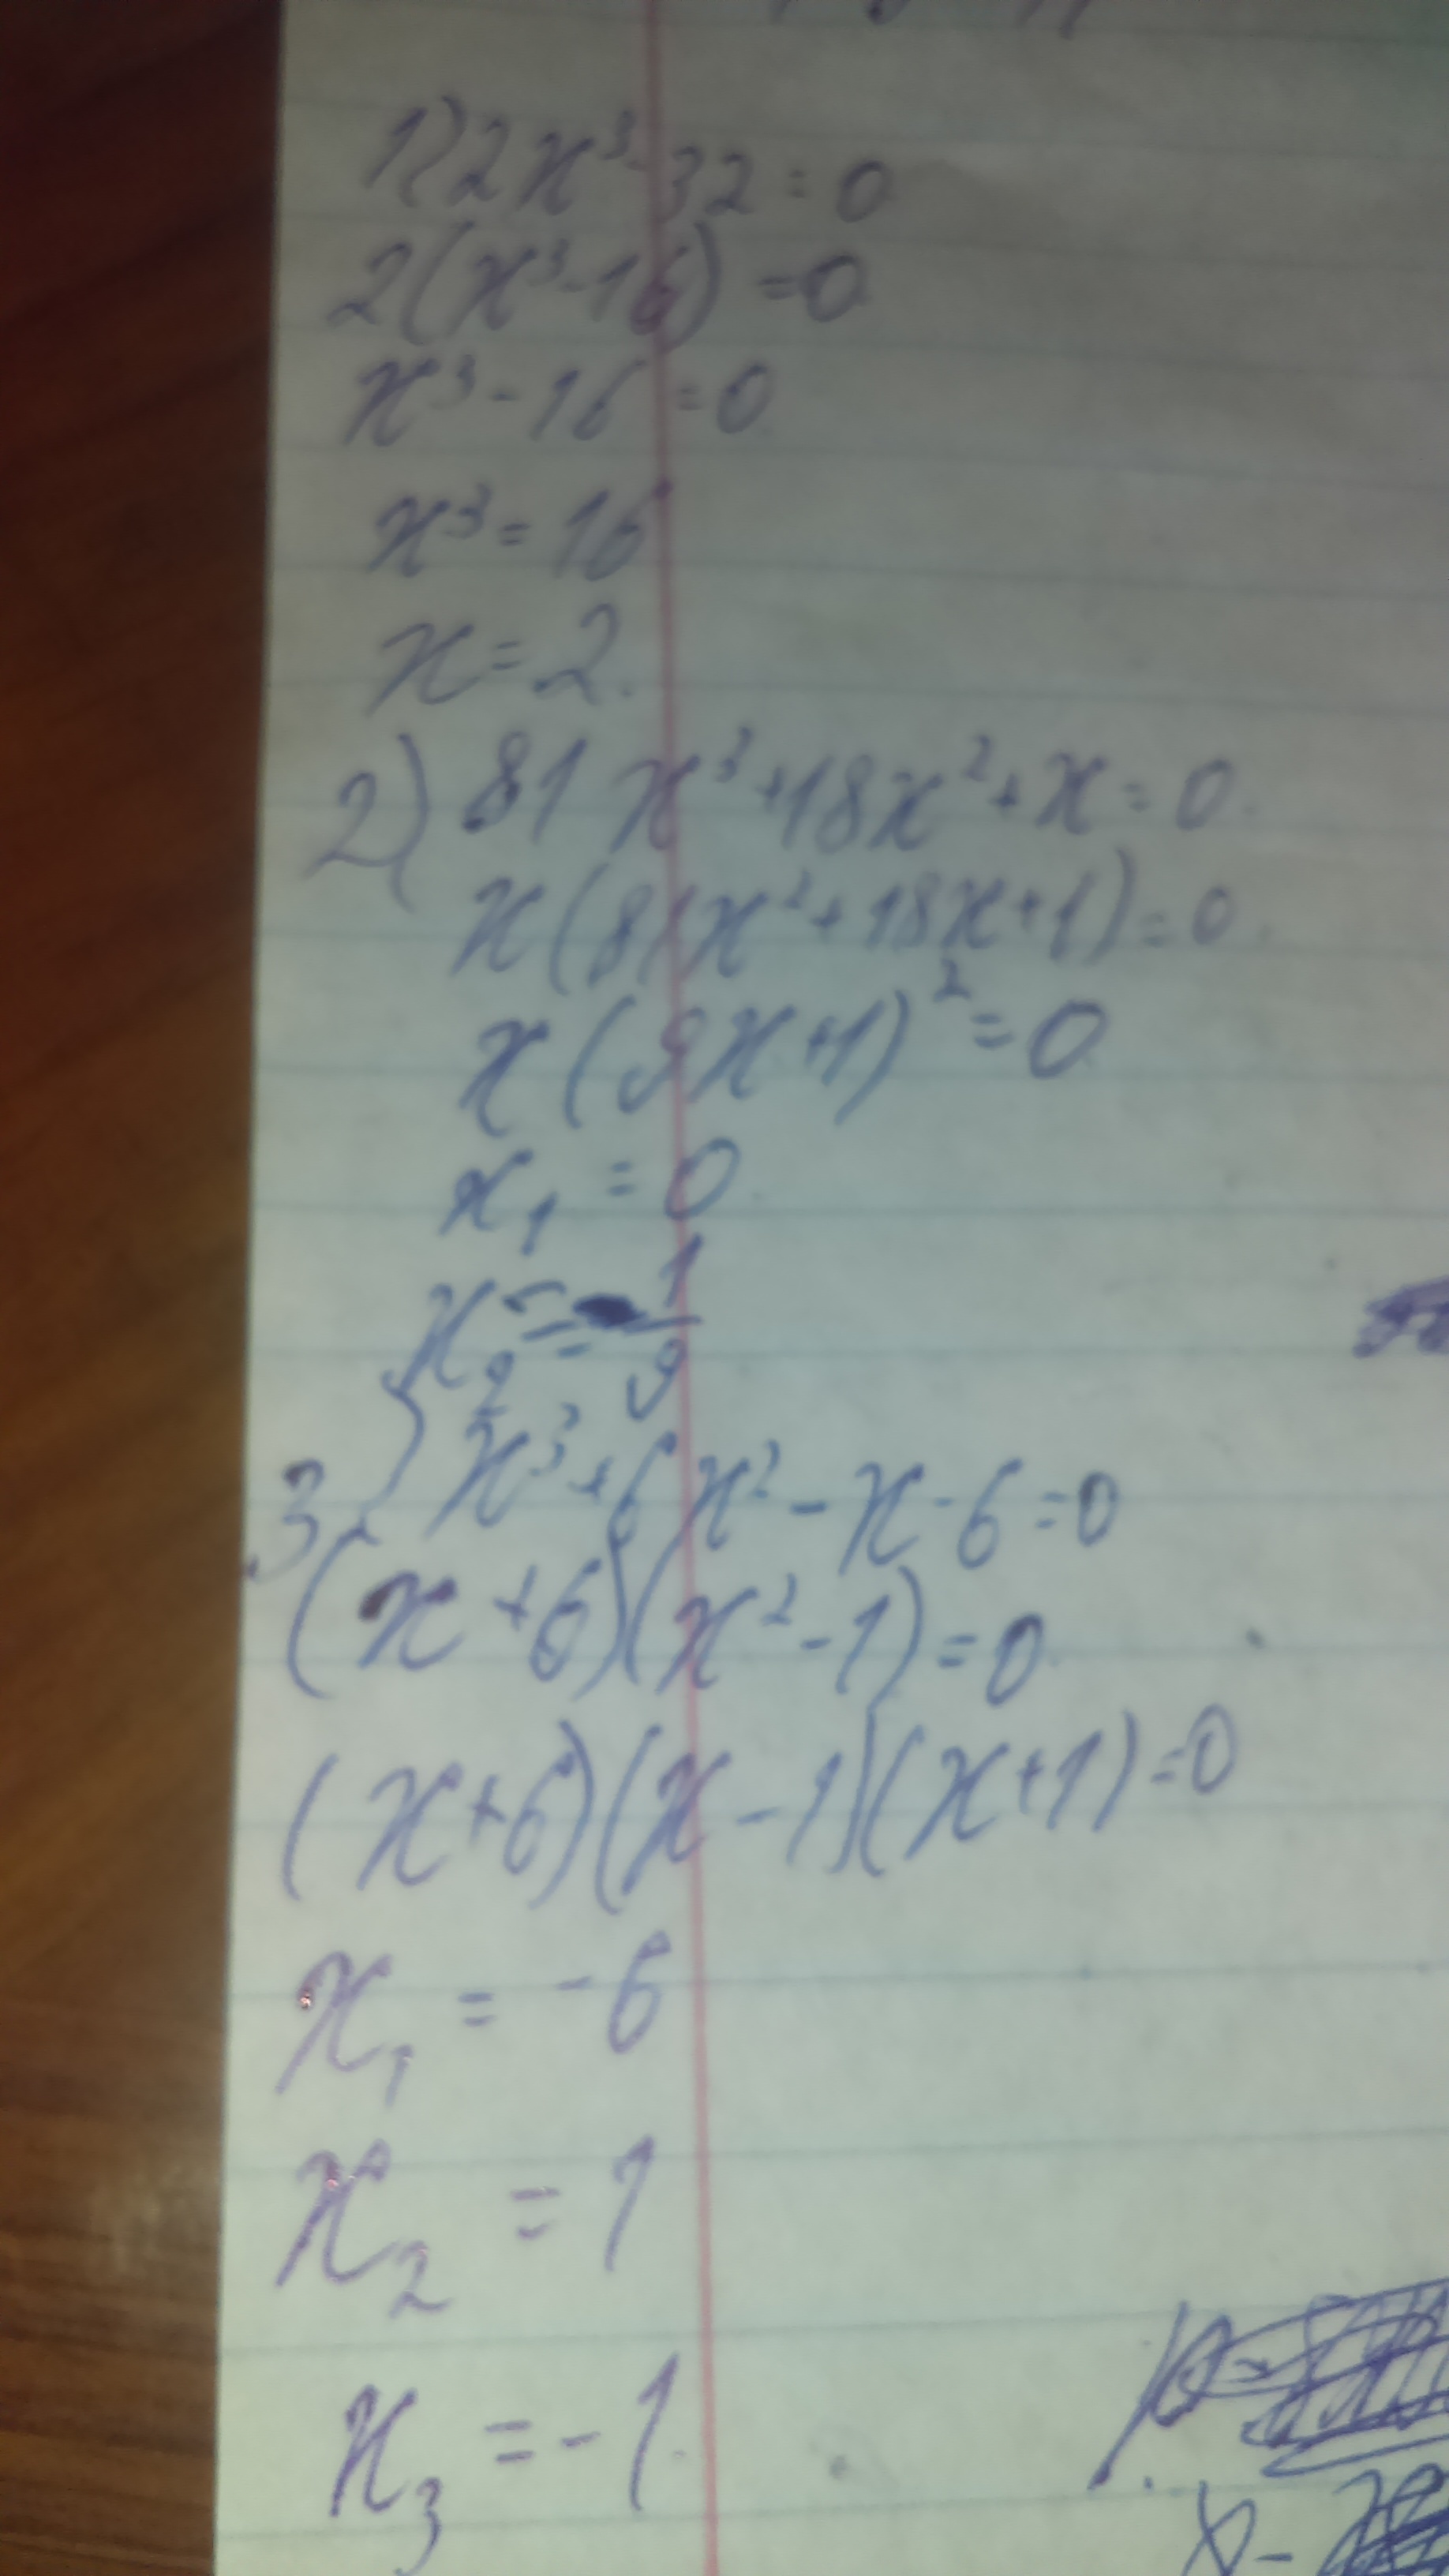 1) 2x³-32=0
2(x³-16)=0
x³-16=0
x³=16
x=2.
2) 81x³+18x²+x=0.
x(81x²+18x+1)=0.
x(9x+1)²=0
x₁=0.
x₂=-1/9
3) x³+6x²-x-6=0
(x+6)(x²-1)=0.
(x+6)(x-1)(x+1)=0
x₁=-6
x₂=1
x₃=-1.